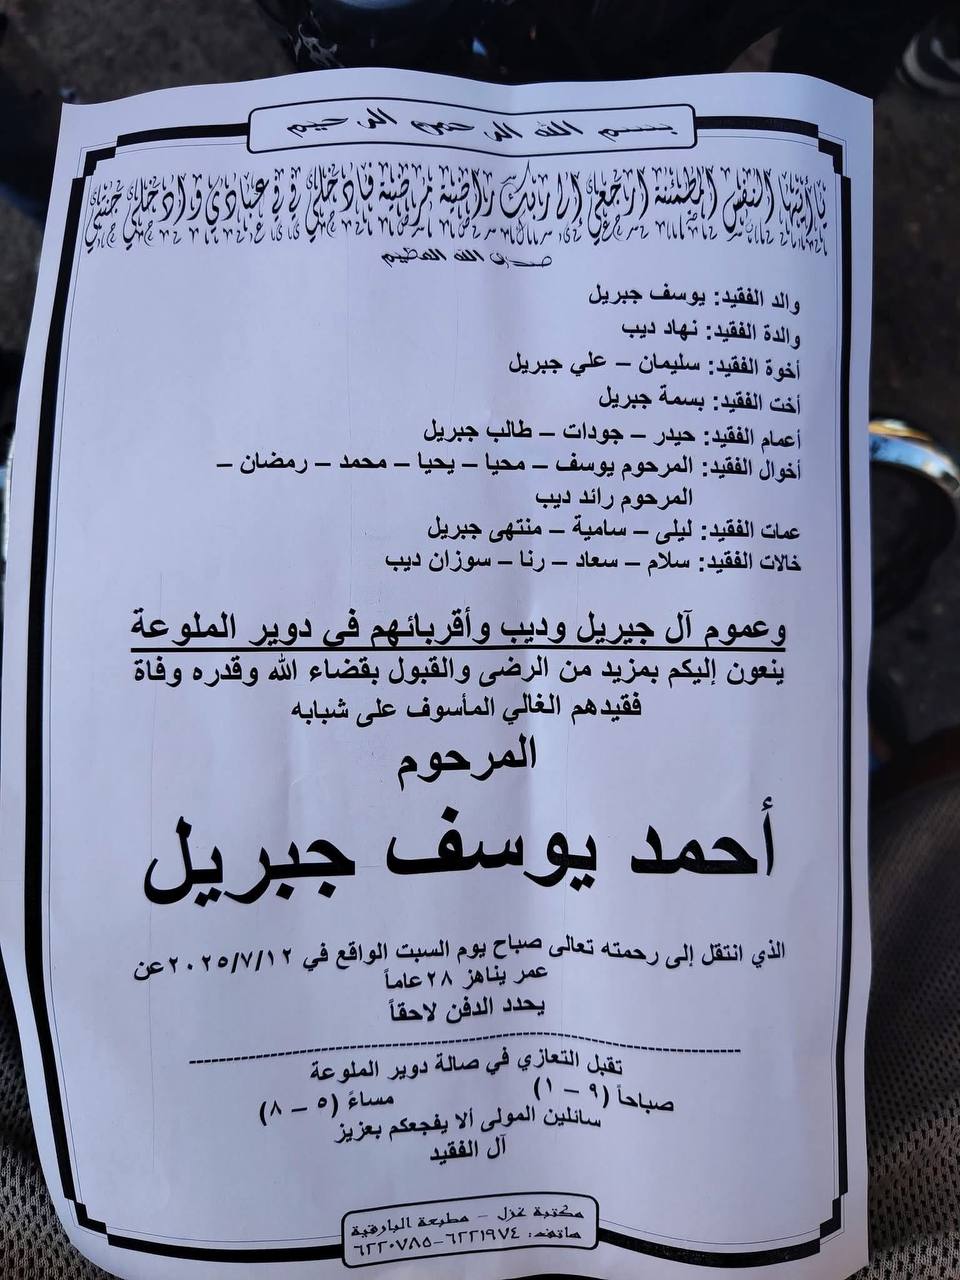 بسم الله الرحمن الرحيم
يا أيتها النفس المطمئنة ارجعي إلى ربك راضية مرضية فادخلي في عبادي وادخلي جنتي
صدق الله العظيم
والد الفقيد: يوسف جبريل
والدة الفقيد: نهاد ديب
أخوة الفقيد: سليمان – علي جبريل
أخت الفقيد: بسمة جبريل
أعمام الفقيد: حيدر – جودات – طالب جبريل
أخوال الفقيد: المرحوم يوسف – محيا – يحيا – محمد – رمضان –
المرحوم رائد ديب
عمات الفقيد: ليلى – سامية – منتهى جبريل
خالات الفقيد: سلام – سعاد – رنا – سوزان ديب
وعموم آل جبريل وديب وأقربائهم في دوير الملوعة
ينعون إليكم بمزيد من الرضى والقبول بقضاء الله وقدره وفاة
فقيدهم الغالي المأسوف على شبابه
المرحوم
أحمد يوسف جبريل
الذي انتقل إلى رحمته تعالى صباح يوم السبت الواقع في ٢٠٢٥/٧/١٢ عن
عمر يناهز ٢٨ عاماً
يحدد الدفن لاحقاً
تقبل التعازي في صالة دوير الملوعة
صباحاً (٩ – ١) مساءً (٥ – ٨)
سائلين المولى ألا يفجعكم بعزيز
آل الفقيد
مكتبة غزل – مطبعة البارقية
هاتف: ٦٢٢١٩٧٤-٦٢٢٠٧٨٥